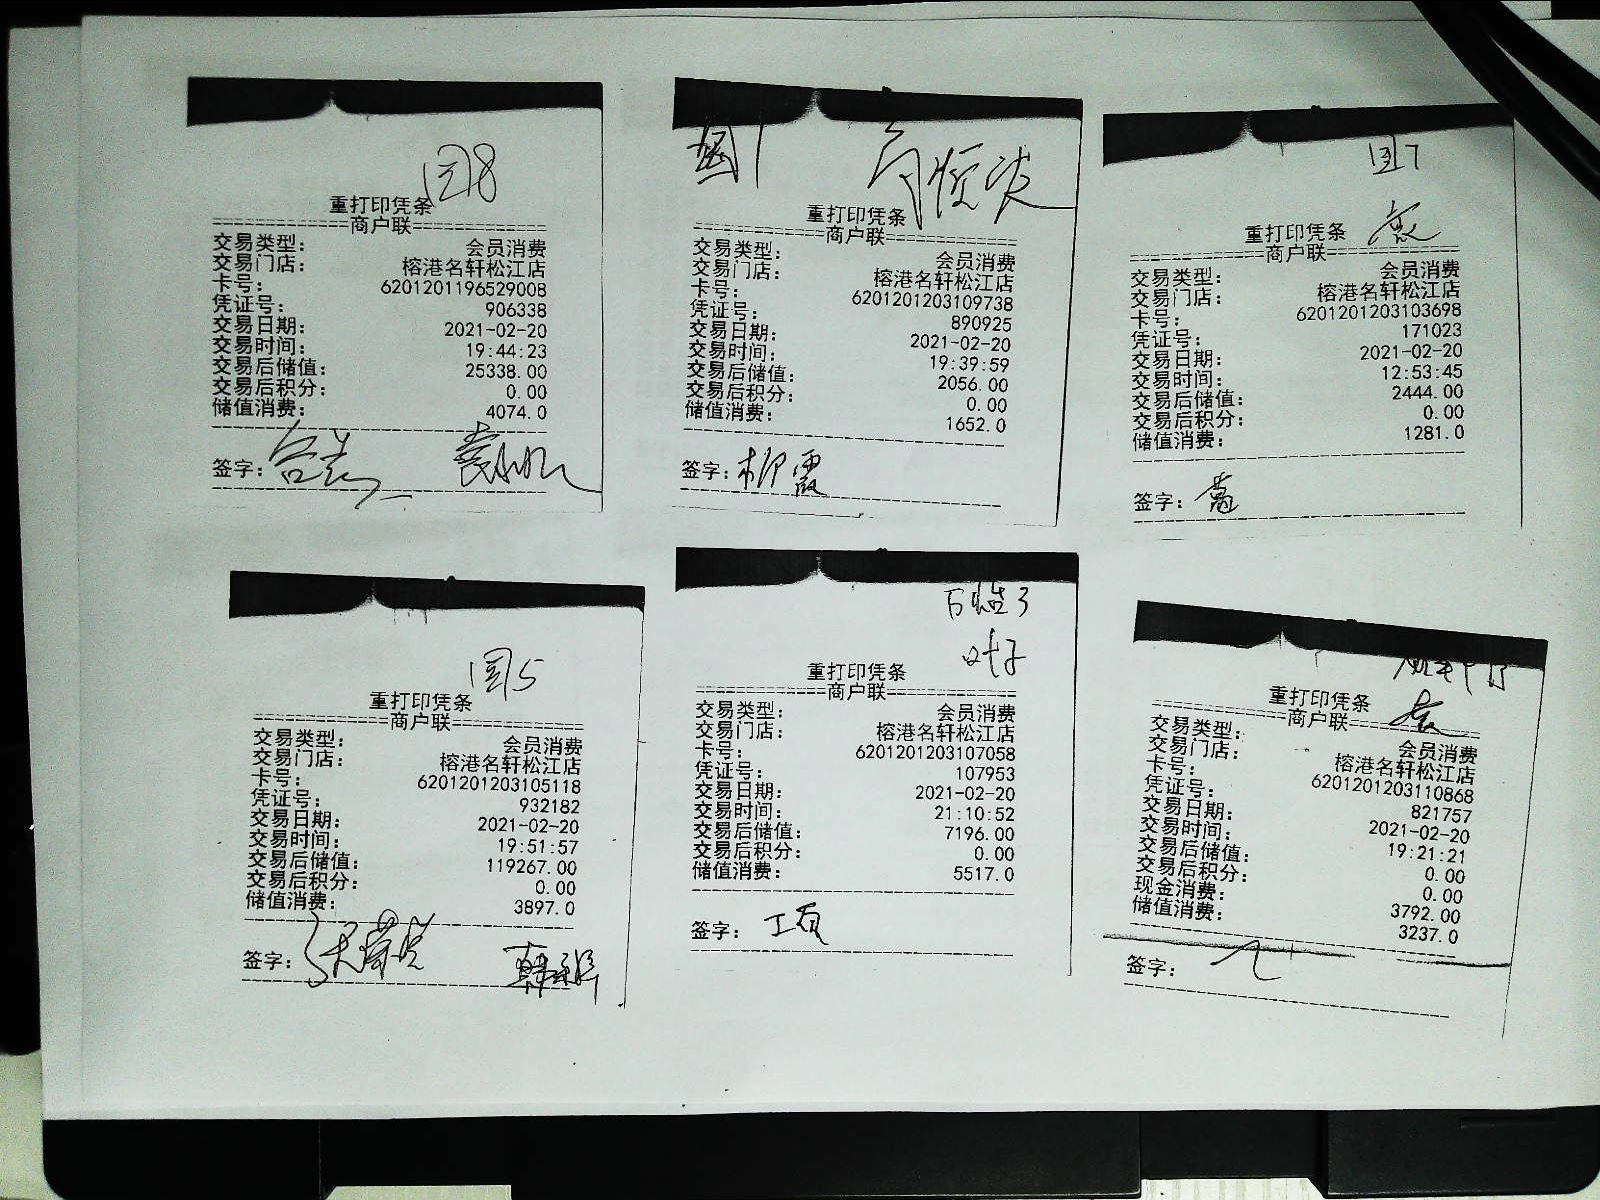 国8
重打印凭条
================商户联================
交易类型： 会员消费
交易门店： 榕港名轩松江店
卡号： 6201201196529008
凭证号： 906338
交易日期： 2021-02-20
交易时间： 19:44:23
交易后储值： 25338.00
交易后积分： 0.00
储值消费： 4074.0
签字：
国1
重打印凭条
================商户联================
交易类型： 会员消费
交易门店： 榕港名轩松江店
卡号： 6201201203109738
凭证号： 890925
交易日期： 2021-02-20
交易时间： 19:39:59
交易后储值： 2056.00
交易后积分： 0.00
储值消费： 1652.0
签字：柳霞
国7
重打印凭条
================商户联================
交易类型： 会员消费
交易门店： 榕港名轩松江店
卡号： 6201201203103698
凭证号： 171023
交易日期： 2021-02-20
交易时间： 12:53:45
交易后储值： 2444.00
交易后积分： 0.00
储值消费： 1281.0
签字：
国5
重打印凭条
================商户联================
交易类型： 会员消费
交易门店： 榕港名轩松江店
卡号： 6201201203105118
凭证号： 932182
交易日期： 2021-02-20
交易时间： 19:51:57
交易后储值： 119267.00
交易后积分： 0.00
储值消费： 3897.0
签字：
叶子
重打印凭条
================商户联================
交易类型： 会员消费
交易门店： 榕港名轩松江店
卡号： 6201201203107058
凭证号： 107953
交易日期： 2021-02-20
交易时间： 21:10:52
交易后储值： 7196.00
交易后积分： 0.00
储值消费： 5517.0
签字：
重打印凭条
================商户联================
交易类型： 会员消费
交易门店： 榕港名轩松江店
卡号： 6201201203110868
凭证号： 821757
交易日期： 2021-02-20
交易时间： 19:21:21
交易后储值： 0.00
交易后积分： 0.00
现金消费： 3792.00
储值消费： 3237.0
签字：